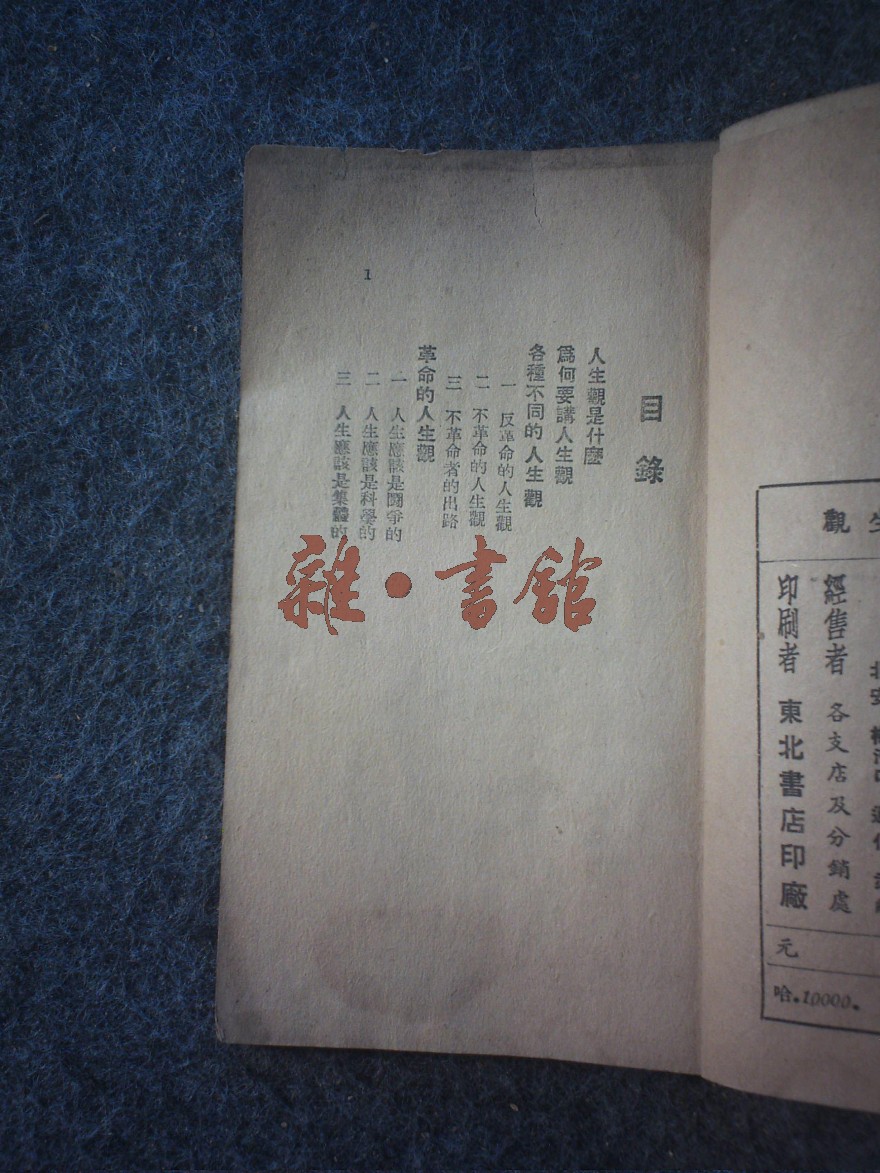 目錄
人生觀是什麼
爲何要講人生觀
各種不同的人生觀
一 反革命的人生觀
二 不革命的人生觀
三 不革命者的出路
革命的人生觀
一 人生應該是鬪爭的
二 人生應該是科學的
三 人生應該是集體的
1
雜·書館
生觀
經售者 各支店及分銷處
印刷者 東北書店印廠
元
哈.10000.